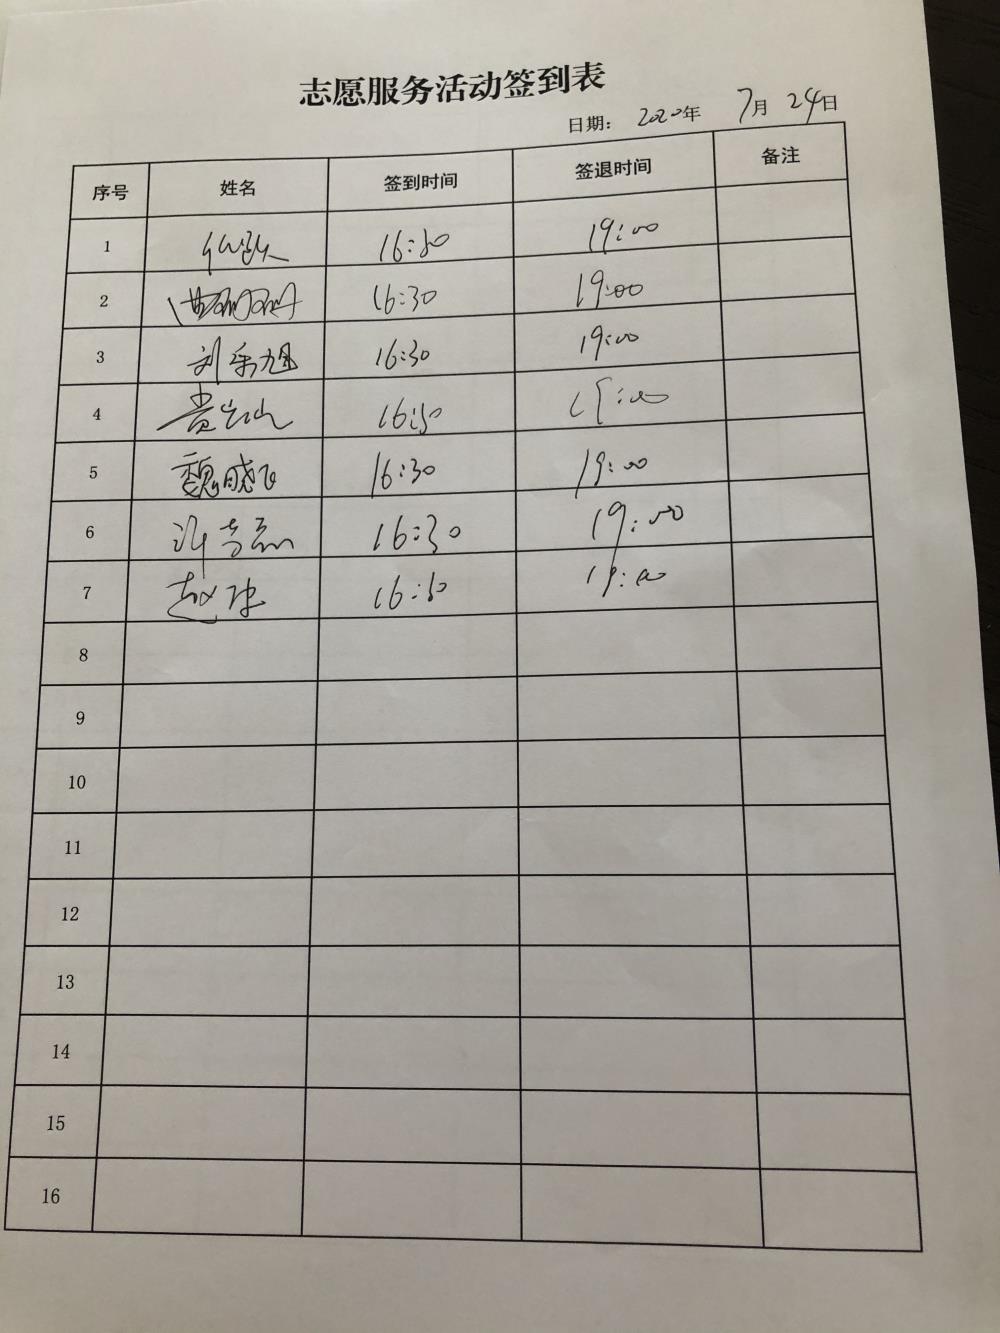 志愿服务活动签到表
日期: 2020年 7月 24日
序号 姓名 签到时间 签退时间 备注
1 16:30 19:00
2 16:30 19:00
3 16:30 19:00
4 16:30 19:00
5 魏晓飞 16:30 19:00
6 16:30 19:00
7 16:30 19:00
8
9
10
11
12
13
14
15
16